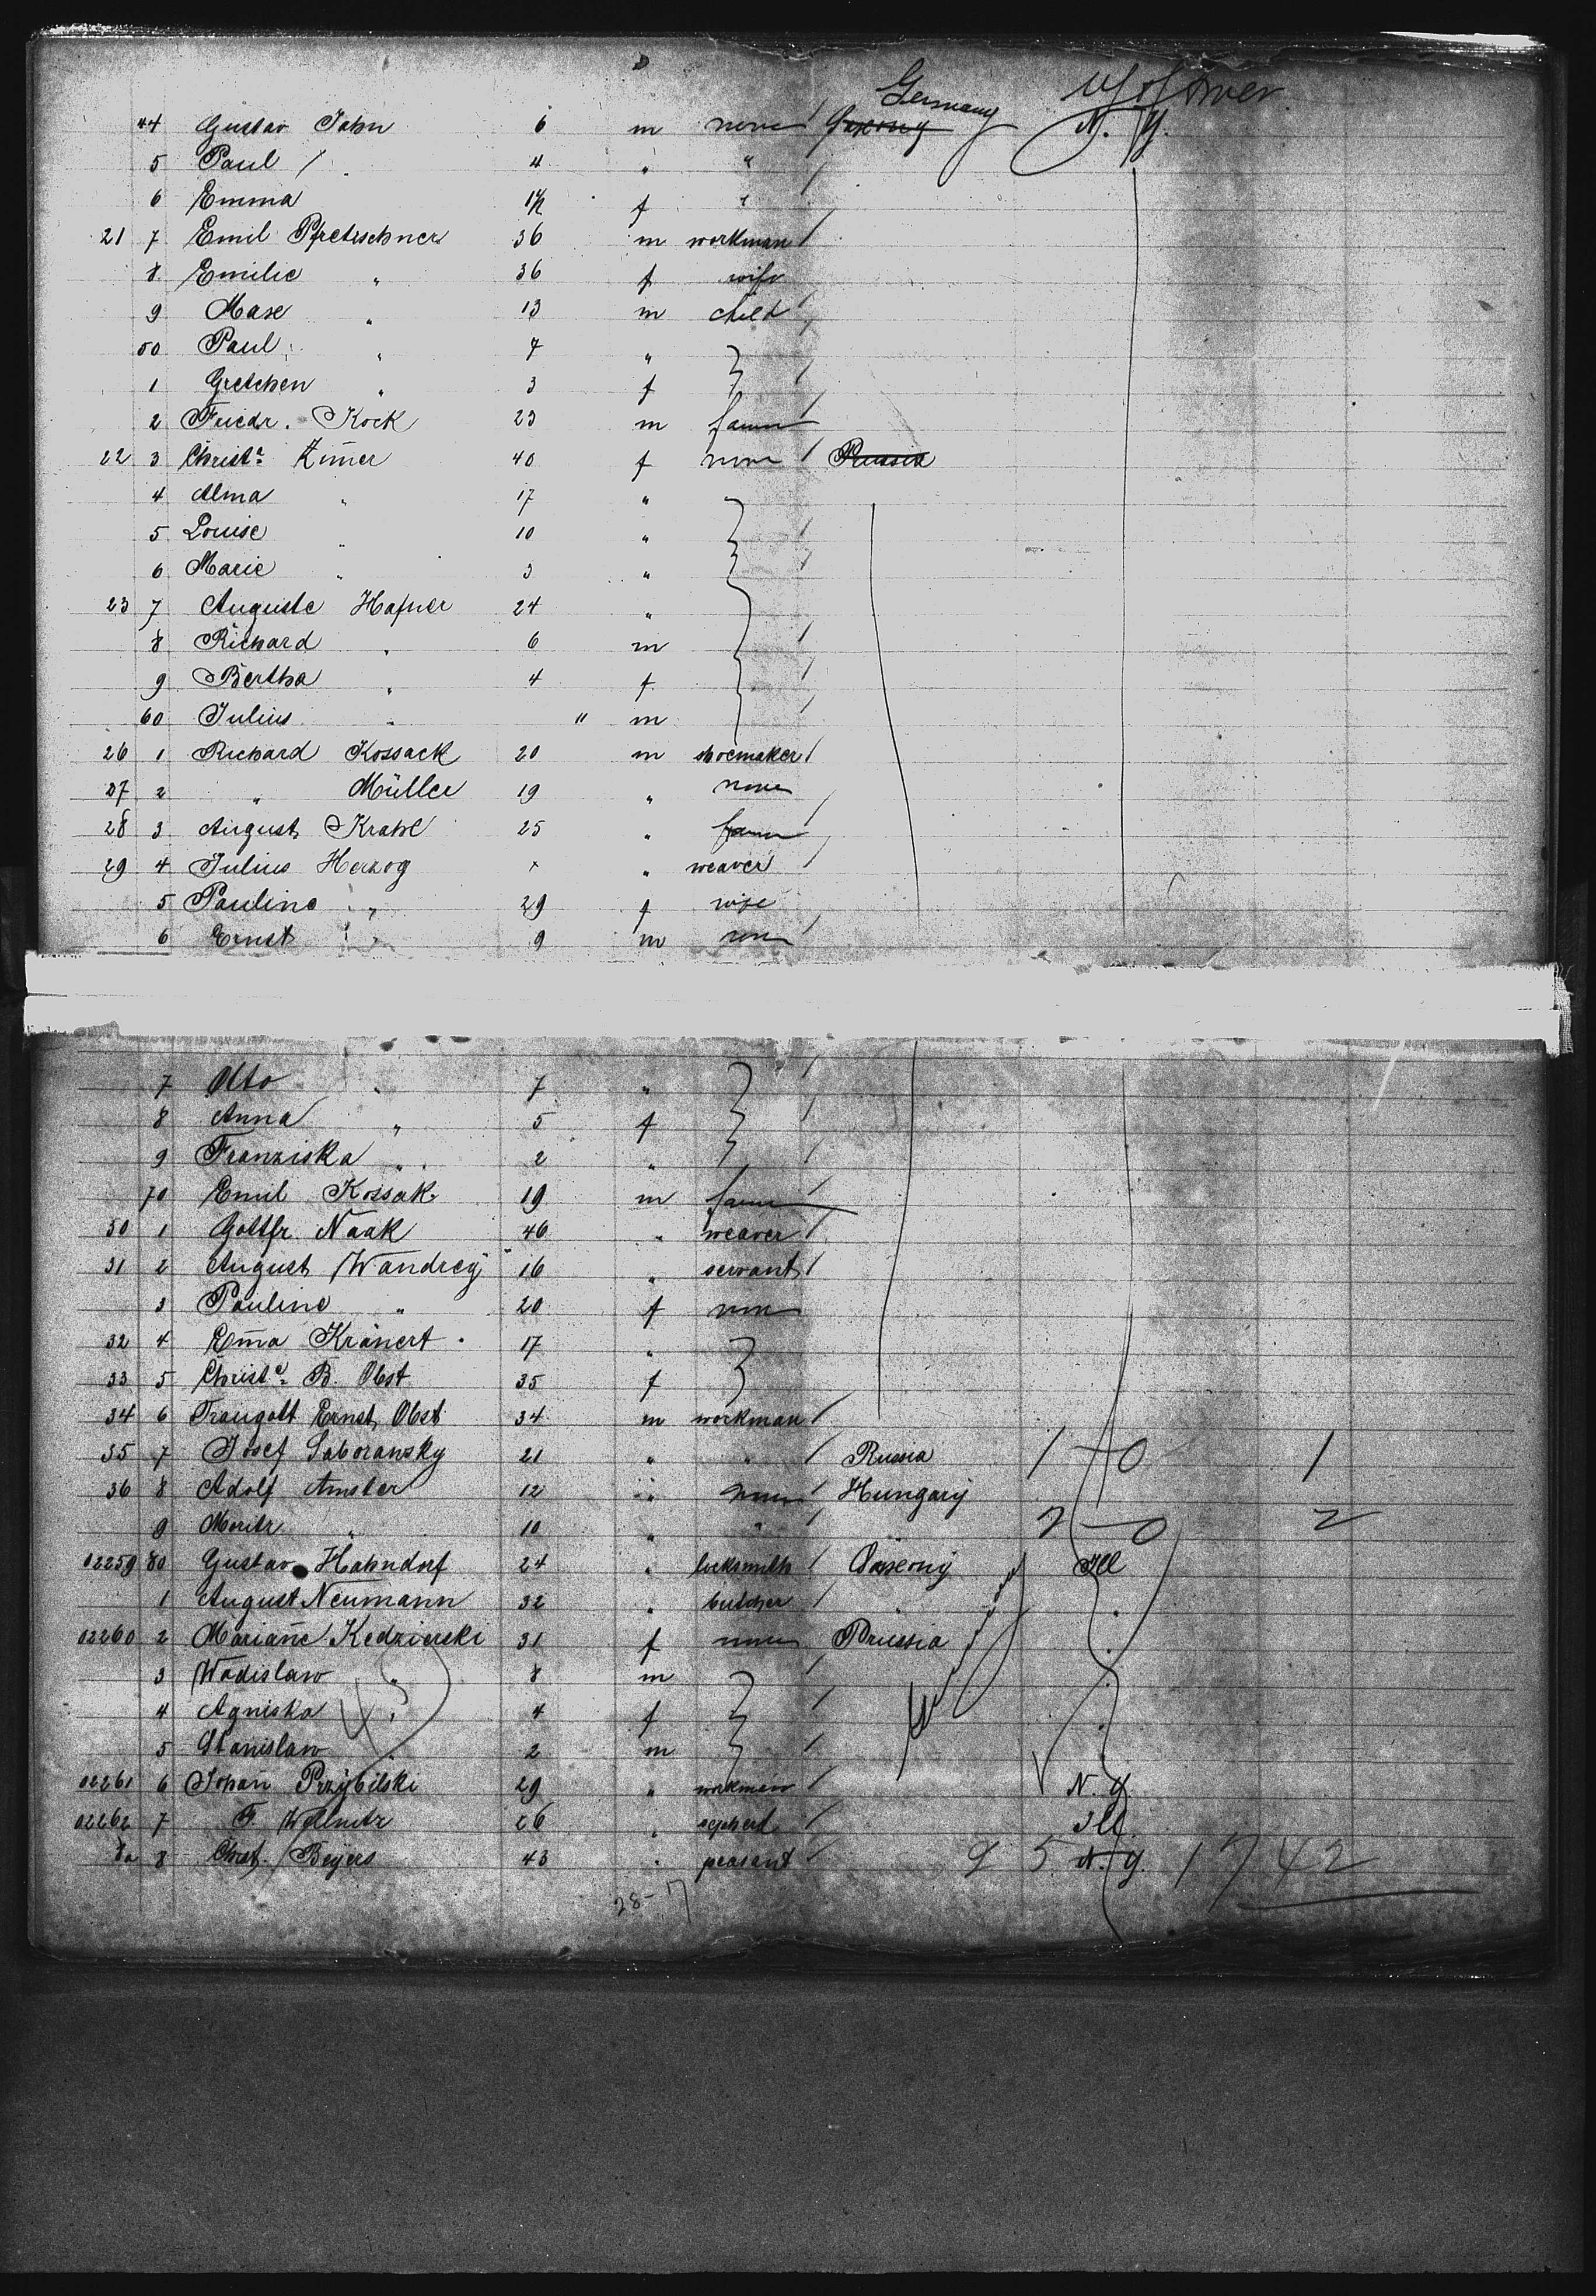 Germany
44 Gustav Jahn 6 m none Saxony N. Y.
5 Paul 4 " "
6 Emma 1½ f "
21 7 Emil Pfretzschner 36 m workman
8 Emilie " 36 f wife
9 Max " 13 m child
50 Paul " 7 "
1 Gretchen " 3 f
2 Friedr. Kock 23 m farmer
22 3 Christe. Zim̄er 40 f none Prussia
4 Alma " 17 "
5 Louise " 10 "
6 Marie " 3 "
23 7 Auguste Hafner 24 "
8 Richard " 6 m
9 Bertha " 4 f
60 Julius " " m
26 1 Richard Kossack 20 m shoemaker
27 2 " Müller 19 " none
28 3 August Krahl 25 " farmer
29 4 Julius Herzog + " weaver
5 Pauline " 29 f wife
6 Ernst " 9 m none
7 Otto " 7 "
8 Anna " 5 f
9 Franziska " 2 "
70 Emil Kossak 19 m farmer
30 1 Gottfr. Naak 46 " weaver
31 2 August Wandrey 16 " servant
3 Pauline " 20 f none
32 4 Em̄a Kränert 17 "
33 5 Christe. B. Obst 35 f
34 6 Traugott Ernst Obst 34 m workman
35 7 Josef Saboransky 21 " " Russia 1 0 1
36 8 Adolf Amsler 12 " none Hungary
9 Moritz " 10 " " 2 0 2
02259 80 Gustav Hahndorf 24 " locksmith Saxony Ill
1 August Neumann 32 " butcher "
02260 2 Marian̄e Kedzierski 31 f none Prussia "
3 Wadislaw " 8 m "
4 Agniska " 4 f "
5 Stanislaw " 2 m "
02261 6 Johan̄ Przybilski 29 " workman N. Y.
02262 7 F. Wellnitz 26 " Ill
8a 8 Christ. Beyers 43 " peasant 9 5 N. Y. 17 42
28-17